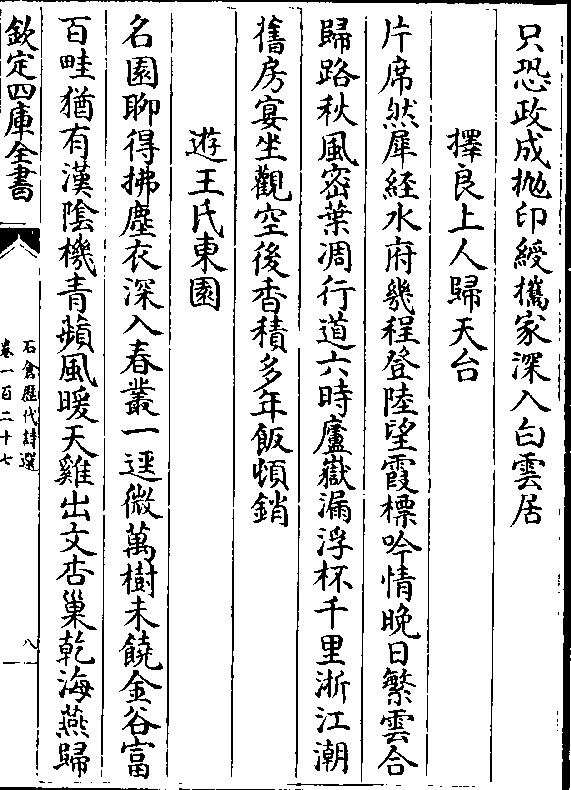 只恐政成抛印綬攜家深入白雲居
擇良上人歸天台
片席然犀經水府幾程登陸望霞標吟情晚日繁雲合
歸路秋風密葉凋行道六時廬嶽漏浮杯千里浙江潮
舊房宴坐觀空後香積多年飯頓銷
遊王氏東園
名園聊得拂塵衣深入春叢一逕微萬樹未饒金谷富
百畦猶有漢陰機青蘋風暖天雞出文杏巢乾海燕歸
欽定四庫全書
石倉歷代詩選
卷一百二十七
八